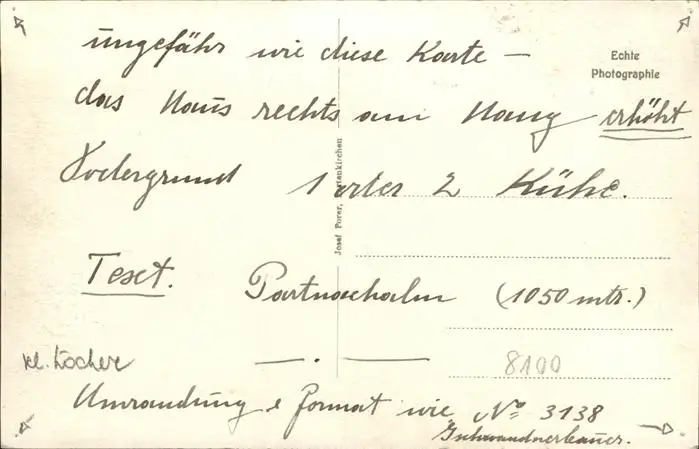 ungefähr wie diese Karte —
Echte
Photographie
das Haus rechts am Hang erhöht
Vodergrund 1 oder 2 Kühe.
Josef Porer, Partenkirchen
Text. Partnachalm (1050 mtr.)
kl. Löcher
— . —
8100
Umrandung & Format wie No 3138
Gschwandnerbauer.